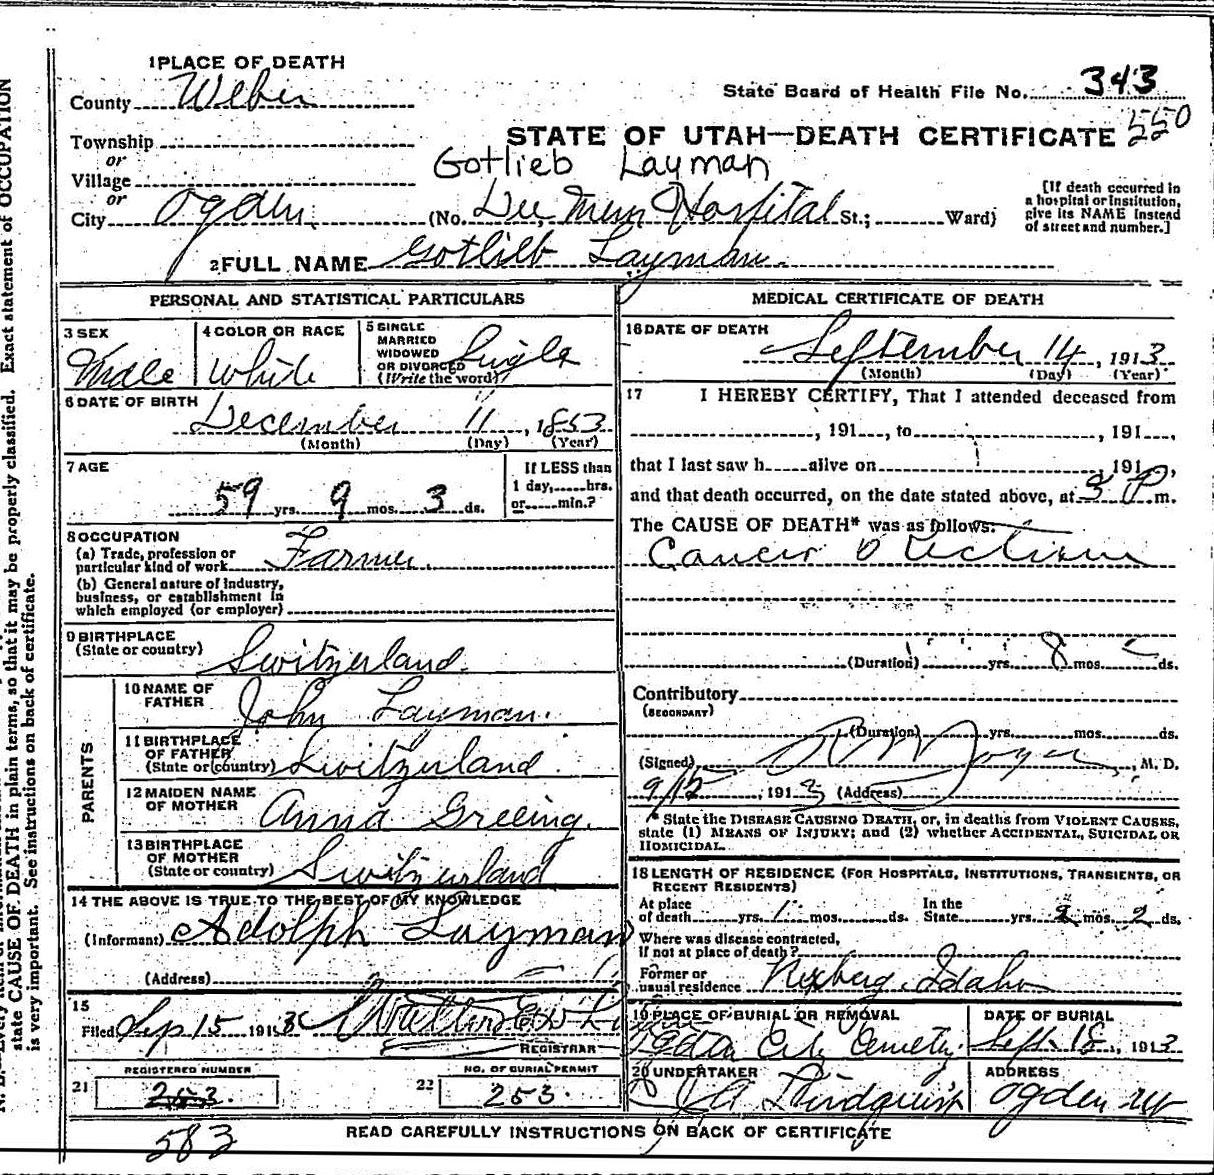 1 PLACE OF DEATH
County Weber
State Board of Health File No. 343
550
Township
or
Village
or
STATE OF UTAH—DEATH CERTIFICATE
Gotlieb Layman
City Ogden (No. Dee Mem Hospital St.; Ward)
[If death occurred in
a hospital or Institution,
give its NAME instead
of street and number.]
2 FULL NAME Gotlieb Layman.
PERSONAL AND STATISTICAL PARTICULARS
3 SEX
Male
4 COLOR OR RACE
White
5 SINGLE
MARRIED
WIDOWED
OR DIVORCED
(Write the word)
Single
6 DATE OF BIRTH
December 11, 1853
(Month) (Day) (Year)
7 AGE
59 yrs. 9 mos. 3 ds.
If LESS than
1 day, hrs.
or min.?
8 OCCUPATION
(a) Trade, profession or
particular kind of work Farmer.
(b) General nature of industry,
business, or establishment in
which employed (or employer)
9 BIRTHPLACE
(State or country)
Switzerland.
PARENTS
10 NAME OF
FATHER
John Layman.
11 BIRTHPLACE
OF FATHER
(State or country) Switzerland.
12 MAIDEN NAME
OF MOTHER
Anna Greeing.
13 BIRTHPLACE
OF MOTHER
(State or country) Switzerland
14 THE ABOVE IS TRUE TO THE BEST OF MY KNOWLEDGE
(Informant) Adolph Layman
(Address)
15
Filed Sep 15 1913 Walter
REGISTRAR
REGISTERED NUMBER
21 253.
583
NO. OF BURIAL PERMIT
22 253.
MEDICAL CERTIFICATE OF DEATH
16 DATE OF DEATH
September 14, 1913
(Month) (Day) (Year)
17 I HEREBY CERTIFY, That I attended deceased from
, 191 , to , 191 ,
that I last saw h alive on , 191 ,
and that death occurred, on the date stated above, at 3 P m.
The CAUSE OF DEATH* was as follows:
Cancer o Rectum
(Duration) yrs. 8 mos. ds.
Contributory
(SECONDARY)
(Duration) yrs. mos. ds.
(Signed) , M. D.
9/15, 1913 (Address)
* State the DISEASE CAUSING DEATH, or, in deaths from VIOLENT CAUSES,
state (1) MEANS OF INJURY; and (2) whether ACCIDENTAL, SUICIDAL OR
HOMICIDAL.
18 LENGTH OF RESIDENCE (FOR HOSPITALS, INSTITUTIONS, TRANSIENTS, OR
RECENT RESIDENTS)
At place
of death yrs. 1 mos. ds.
In the
State yrs. 2 mos. 2 ds.
Where was disease contracted,
if not at place of death?
Former or
usual residence Rexberg, Idaho
19 PLACE OF BURIAL OR REMOVAL
Ogden City Cemetery.
DATE OF BURIAL
Sept. 18, 1913
20 UNDERTAKER
J A Lindquist
ADDRESS
Ogden
READ CAREFULLY INSTRUCTIONS ON BACK OF CERTIFICATE
state CAUSE OF DEATH in plain terms, so that it may be properly classified. Exact statement of OCCUPATION
is very important. See instructions on back of certificate.